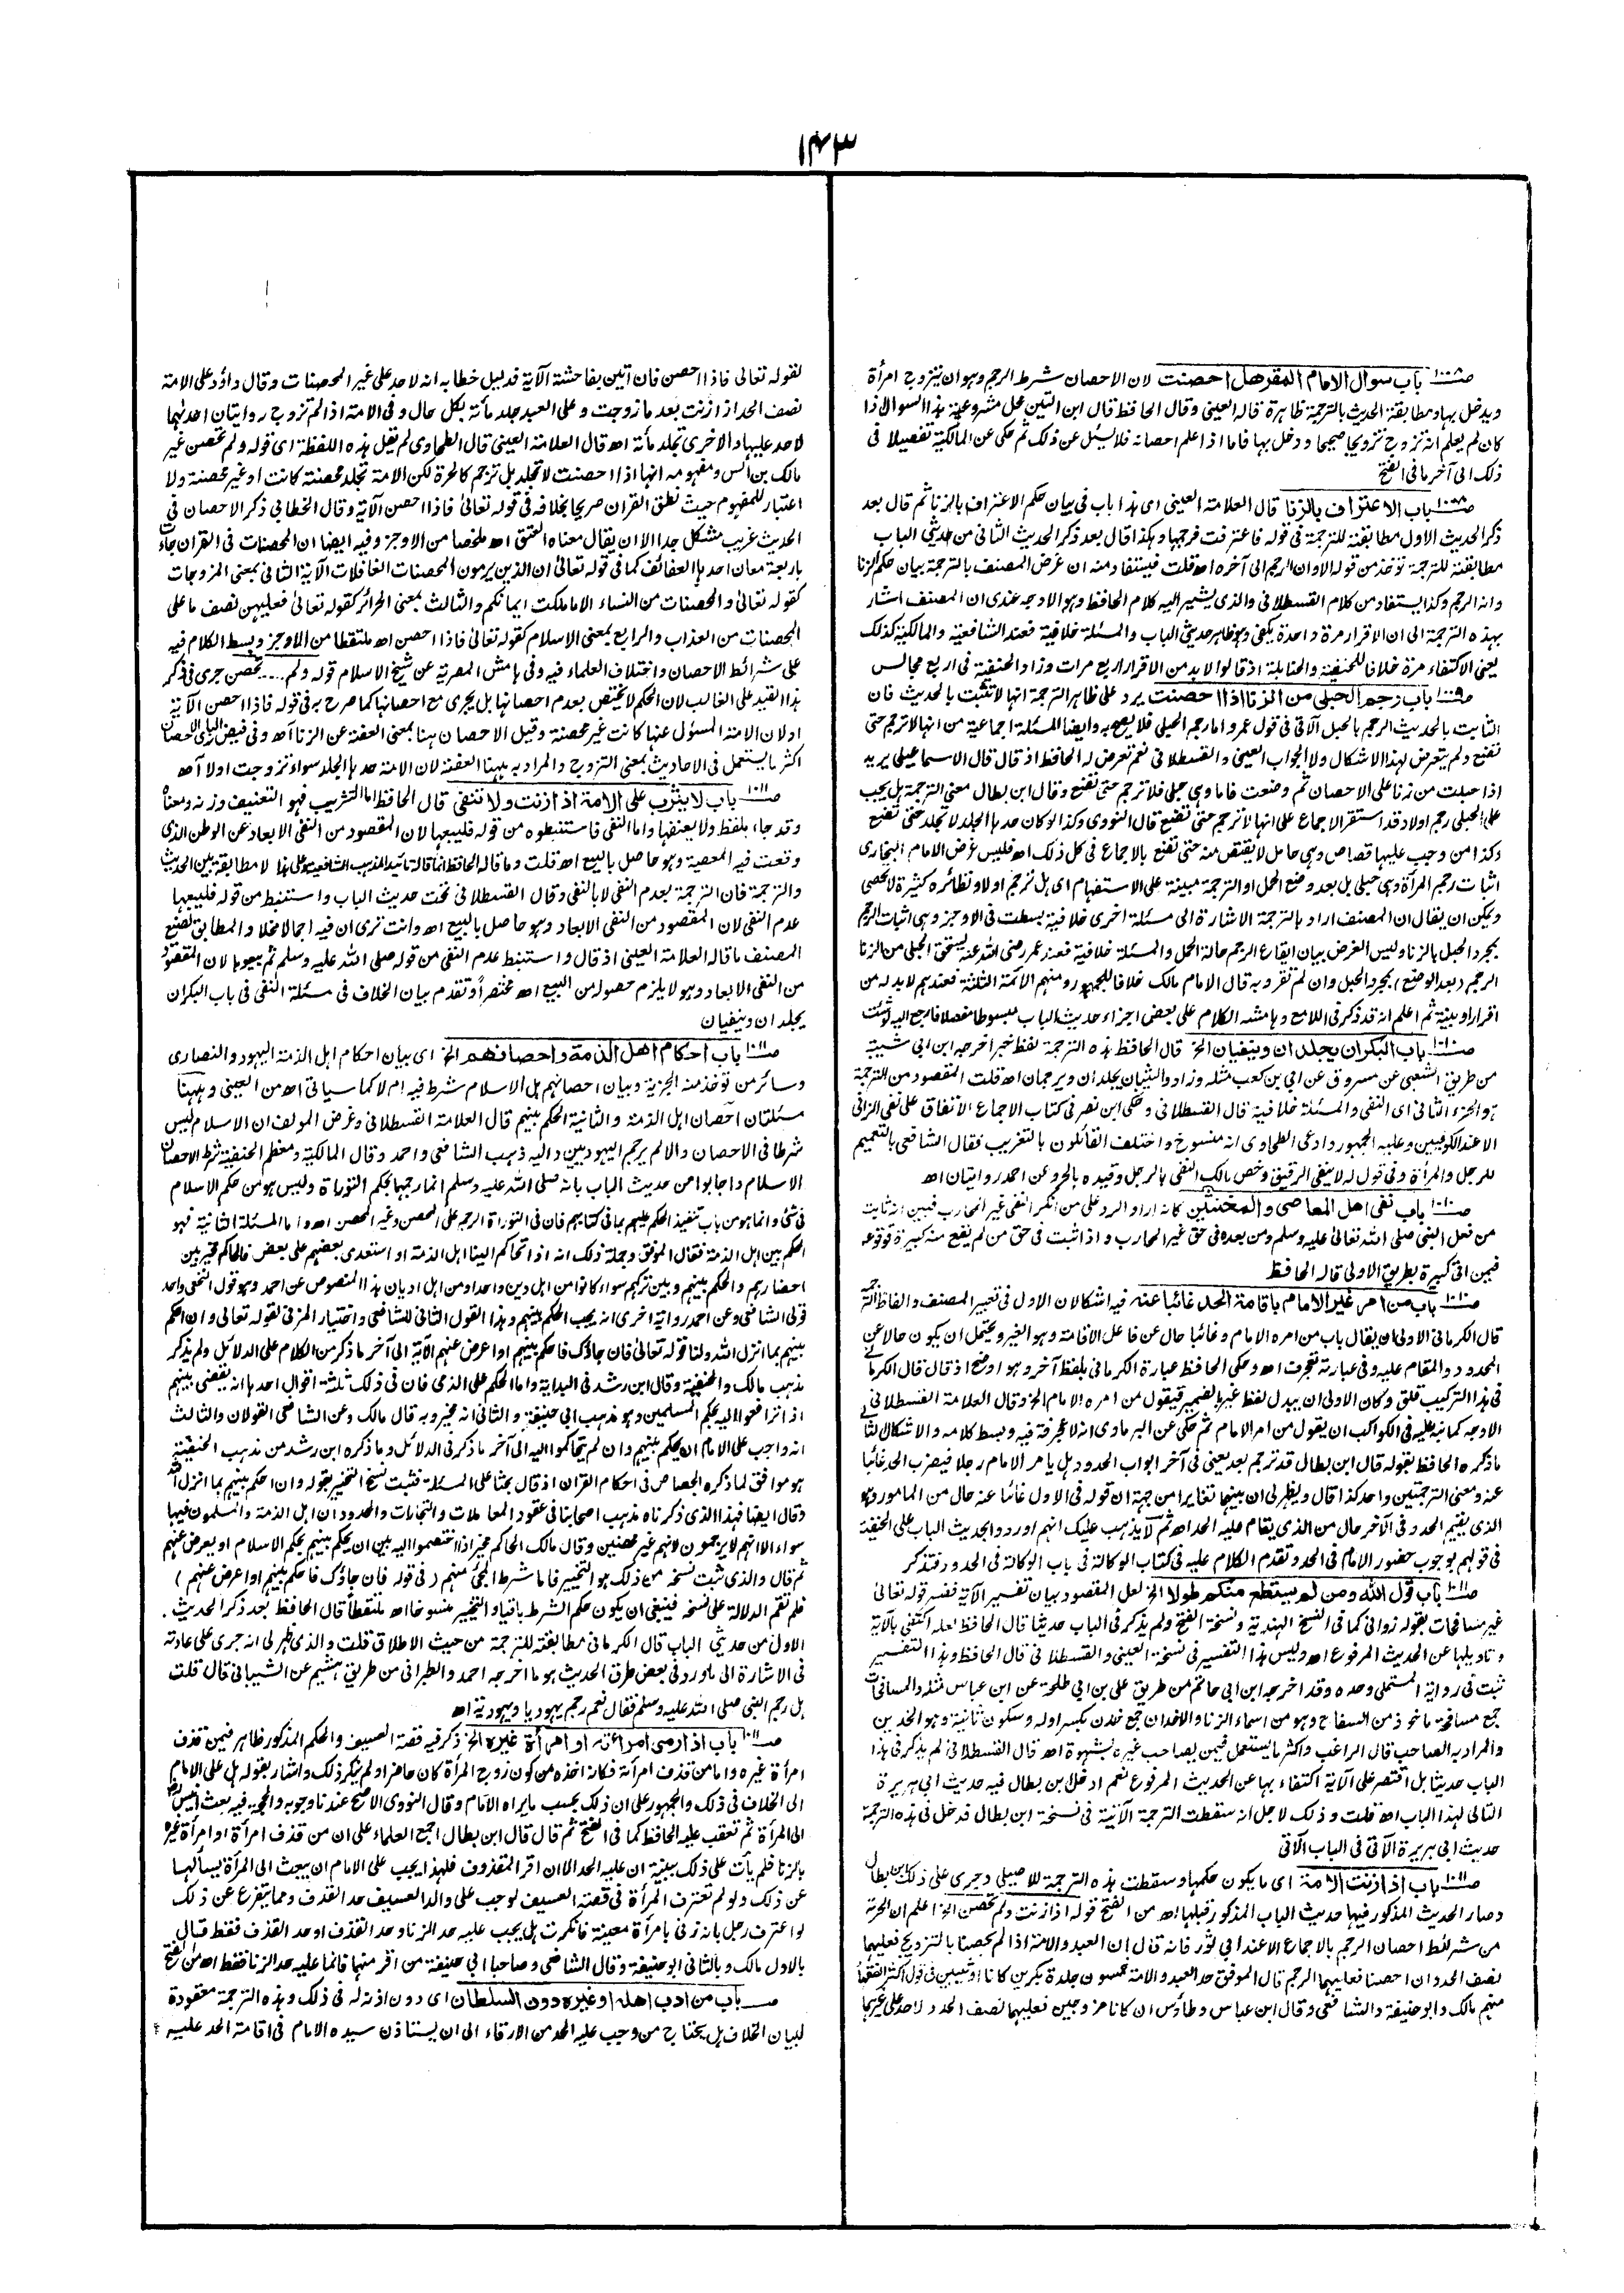 ١٤٣
صـ١٠٠٨ باب سوال الامام المقر هل احصنت لان الاحصان شرط الرجم وهو ان يتزوج امرأة
ويدخل بها ومطابقة الحديث بالترجمة ظاهرة قاله العينى وقال الحافظ قال ابن التين محل مشروعية هذا السوال اذا
كان لم يعلم انه تزوج تزويجا صحيحا ودخل بها فاما اذا علم احصانه فلا يسئل عن ذلك ثم حكى عن المالكية تفصيلا فى
ذلك الى آخر ما فى الفتح
صـ١٠٠٨ باب الاعتراف بالزنا قال العلامة العينى اى هذا باب فى بيان حكم الاعتراف بالزنا ثم قال بعد
ذكر الحديث الاول مطابقته للترجمة فى قوله فاعترفت فرجمها وهكذا قال بعد ذكر الحديث الثانى من حديثى الباب
مطابقته للترجمة تؤخذ من قوله الا وان الرجم الى آخره اھ قلت فيستفاد منه ان غرض المصنف بالترجمة بيان حكم الزنا
وانه الرجم وكذا يستفاد من كلام القسطلانى والذى يشير اليه كلام الحافظ وهو الاوجه عندى ان المصنف اشار
بهذه الترجمة الى ان الاقرار مرة واحدة يكفى وهو ظاهر حديثى الباب والمسئلة خلافية فعند الشافعية والمالكية كذلك
يعنى الاكتفاء مرة خلافا للحنفية والحنابلة اذ قالوا لابد من الاقرار اربع مرات وزاد الحنفية فى اربع مجالس
صـ١٠٠٩ باب رجم الحبلى من الزنا اذا احصنت يرد على ظاهر الترجمة انها لا تثبت بالحديث فان
الثابت بالحديث الرجم بالحبل الآتى فى قول عمر واما رجم الحبلى فلا يصح به وايضا المسئلة اجماعية من انها لا ترجم حتى
تضع ولم يتعرض لهذا الاشكال ولا الجواب العينى والقسطلانى نعم تعرض له الحافظ اذ قال قال الاسماعيلى يريد
اذا حبلت من زنا على الاحصان ثم وضعت فاما وهى حبلى فلا ترجم حتى تضع وقال ابن بطال معنى الترجمة هل يجب
على الحبلى رجم اولا وقد استقر الاجماع على انها لا ترجم حتى تضع قال النووى وكذا لو كان حدها الجلد لا تجلد حتى تضع
وكذا من وجب عليها قصاص وهى حامل لا يقتص منه حتى تضع بالاجماع فى كل ذلك اھ فليس غرض الامام البخارى
اثبات رجم المرأة وهى حبلى بل بعد وضع الحمل او الترجمة مبينة على الاستفهام اى هل ترجم اولا ونظائره كثيرة لا تحصى
ويمكن ان يقال ان المصنف اراد بالترجمة الاشارة الى مسئلة اخرى خلافية بسطت فى الاوجز وهى اثبات الرجم
بمجرد الحبل بالزنا وليس الغرض بيان ايقاع الرجم حالة الحمل والمسئلة خلافية فعند عمر رضى الله عنه يستحق الحبلى من الزنا
الرجم (بعد الوضع) بمجرد الحبل وان لم تقر وبه قال الامام مالك خلافا للجمهور ومنهم الائمة الثلثة فعندهم لابد له من
اقرار او بينة ثم اعلم انه قد ذكر فى اللامع وهامشه الكلام على بعض اجزاء حديث الباب مبسوطا مفصلا فارجع اليه لو شئت
صـ١٠١٠ باب البكران يجلدان وينفيان الخ قال الحافظ هذه الترجمة لفظ خبر اخرجه ابن ابى شيبة
من طريق الشعبى عن مسروق عن ابى بن كعب مثله وزاد والثيبان يجلدان ويرجمان اھ قلت المقصود من الترجمة
هو الجزء الثانى اى النفى والمسئلة خلافية قال القسطلانى وحكى ابن نصر فى كتاب الاجماع الاتفاق على نفى الزانى
الا عند الكوفيين وعليه الجمهور وادعى الطحاوى انه منسوخ واختلف القائلون بالتغريب فقال الشافعى بالتعميم
للرجل والمرأة وفى قول له لا ينفى الرقيق وخص مالك النفى بالرجل وقيده بالحر وعن احمد روايتان اھ
صـ١٠١٠ باب نفى اهل المعاصى والمخنثين كانه اراد الرد على من انكر النفى غير المحارب فبين انه ثابت
من فعل النبى صلى الله تعالى عليه وسلم ومن بعده فى حق غير المحارب واذا ثبت فى حق من لم يقع منه كبيرة فوقوعه
فيمن اتى كبيرة بطريق الاولى قاله الحافظ
صـ١٠١٠ باب من امر غير الامام باقامة الحد غائبا عنه فيه اشكالان الاول فى تعبير المصنف والفاظ الترجمة
قال الكرمانى الاولى ان يقال باب من امره الامام وغائبا حال عن فاعل الاقامة وهو الغير ويحتمل ان يكون حالا عن
المحدود والمقام عليه وفى عبارته تعجرف اھ وحكى الحافظ عبارة الكرمانى بلفظ آخر وهو اوضح اذ قال قال الكرمانى
فى هذا التركيب قلق وكان الاولى ان يبدل لفظ غير بالضمير فيقول من امره الامام الخ وقال العلامة القسطلانى
الاوجه كما نبه عليه فى الكواكب ان يقول من امر الامام ثم حكى عن البرماوى انه لا عجرفة فيه وبسط كلامه والاشكال الثانى
ما ذكره الحافظ بقوله قال ابن بطال قد ترجم بعد يعنى فى آخر ابواب الحدود هل يامر الامام رجلا فيضرب الحد غائبا
عنه ومعنى الترجمتين واحد كذا قال ويظهر لى ان بينهما تغايرا من جهة ان قوله فى الاول غائبا عنه حال من المامور وهو
الذى يقيم الحد وفى الآخر حال من الذى يقام عليه الحد اھ ثم لا يذهب عليك انهم اوردوا بحديث الباب على الحنفية
فى قولهم بوجوب حضور الامام فى الحد وتقدم الكلام عليه فى كتاب الوكالة فى باب الوكالة فى الحدود فتذكر
صـ١٠١١ باب قول الله ومن لم يستطع منكم طولا الخ لعل المقصود بيان تفسير الآية ففسر قوله تعالى
غير مسافحات بقوله زوانى كما فى النسخ الهندية ونسخة الفتح ولم يذكر فى الباب حديثا قال الحافظ لعله اكتفى بالآية
وتاويلها عن الحديث المرفوع اھ وليس هذا التفسير فى نسخة العينى والقسطلانى قال الحافظ وهذا التفسير
ثبت فى رواية المستملى وحده وقد اخرجه ابن ابى حاتم من طريق على بن ابى طلحة عن ابن عباس مثله والمسافحات
جمع مسافحة ماخوذ من السفاح وهو من اسماء الزنا والاخدان جمع خدن بكسر اوله وسكون ثانيه وهو الخدين
والمراد به الصاحب قال الراغب واكثر ما يستعمل فيمن يصاحب غيره بشهوة اھ قال القسطلانى لم يذكر فى هذا
الباب حديثا بل اقتصر على الآية اكتفاء بها عن الحديث المرفوع نعم ادخل ابن بطال فيه حديث ابى هريرة
التالى لهذا الباب اھ قلت وذلك لاجل انه سقطت الترجمة الآتية فى نسخة ابن بطال فدخل فى هذه الترجمة
حديث ابى هريرة الآتى فى الباب الآتى
صـ١٠١١ باب اذا زنت الامة اى ما يكون حكمها وسقطت هذه الترجمة للاصيلى وجرى على ذلك ابن بطال
وصار الحديث المذكور فيها حديث الباب المذكور قبلها اھ من الفتح قوله اذا زنت ولم تحصن الخ اعلم ان الحرية
من شرائط احصان الرجم بالاجماع الا عند ابى ثور فانه قال ان العبد والامة اذا لم يحصنا بالتزويج فعليهما
نصف الحد وان احصنا فعليهما الرجم قال الموفق حد العبد والامة خمسون جلدة بكرين كانا او ثيبين فى قول اكثر الفقهاء
منهم مالك وابو حنيفة والشافعى وقال ابن عباس وطاؤس ان كانا مزوجين فعليهما نصف الحد ولا حد على غيرهما
لقوله تعالى فاذا احصن فان اتين بفاحشة الآية فدليل خطابه انه لا حد على غير المحصنات وقال داؤد على الامة
نصف الحد اذا زنت بعد ما زوجت وعلى العبد جلد مأته بكل حال وفى الامة اذا لم تزوج روايتان احدلهما
لا حد عليها والاخرى تجلد مأته اھ قال العلامة العينى قال الطحاوى لم يقل هذه اللفظة اى قوله ولم تحصن غير
مالك بن انس ومفهومه انها اذا احصنت لا تجلد بل ترجم كالحرة لكن الامة تجلد محصنة كانت او غير محصنة ولا
اعتبار للمفهوم حيث نطق القران صريحا بخلافه فى قوله تعالى فاذا احصن الآية وقال الخطابى ذكر الاحصان فى
الحديث غريب مشكل جدا الا ان يقال معناه العتق اھ ملخصا من الاوجز وفيه ايضا ان المحصنات فى القران جاءت
باربعة معان احدها العفائف كما فى قوله تعالى ان الذين يرمون المحصنات الغافلات الآية الثانى بمعنى المزوجات
كقوله تعالى والمحصنات من النساء الا ما ملكت ايمانكم والثالث بمعنى الحرائر كقوله تعالى فعليهن نصف ما على
المحصنات من العذاب والرابع بمعنى الاسلام كقوله تعالى فاذا احصن اھ ملتقطا من الاوجز وبسط الكلام فيه
على شرائط الاحصان واختلاف العلماء فيه وفى هامش المصرية عن شيخ الاسلام قوله ولم .... تحصن جرى فى ذكر
هذا القيد على الغالب لان الحكم لا يختص بعدم احصانها بل يجرى مع احصانها كما صرح به فى قوله فاذا احصن الآية
او لان الامة المسؤل عنها كانت غير محصنة وقيل الاحصان هنا بمعنى العفة عن الزنا اھ وفى فيض البارى الاحصان
اكثر ما يستعمل فى الاحاديث بمعنى التزوج والمراد به ههنا العفة لان الامة حدها الجلد سواء تزوجت اولا اھ
صـ١٠١١ باب لا يثرب على الامة اذا زنت ولا تنفى قال الحافظ اما التثريب فهو التعنيف وزنه ومعناه
وقد جاء بلفظ ولا يعنفها واما النفى فاستنبطوه من قوله فليبعها لان المقصود من النفى الابعاد عن الوطن الذى
وقعت فيه المعصية وهو حاصل بالبيع اھ قلت وما قاله الحافظ انما قاله تائيد المذهب الشافعية وعلى هذا لا مطابقة بين الحديث
والترجمة فان الترجمة بعدم النفى لا بالنفى وقال القسطلانى تحت حديث الباب واستنبط من قوله فليبعها
عدم النفى لان المقصود من النفى الابعاد وهو حاصل بالبيع اھ وانت ترى ان فيه اجمالا مخلا والمطابق لصنع
المصنف ما قاله العلامة العينى اذ قال واستنبط عدم النفى من قوله صلى الله عليه وسلم ثم بيعوها لان المقصود
من النفى الابعاد وهو لا يلزم حصوله من البيع اھ مختصراً وتقدم بيان الخلاف فى مسئلة النفى فى باب البكران
يجلدان وينفيان
صـ١٠١١ باب احكام اهل الذمة واحصانهم الخ اى بيان احكام اهل الذمة اليهود والنصارى
وسائر من تؤخذ منه الجزية وبيان احصانهم هل الاسلام شرط فيه ام لا كما سياتى اھ من العينى وههنا
مسئلتان احصان اهل الذمة والثانية الحكم بينهم قال العلامة القسطلانى وغرض المولف ان الاسلام ليس
شرطا فى الاحصان والا لم يرجم اليهوديين واليه ذهب الشافعى واحمد وقال المالكية ومعظم الحنفية شرط الاحصان
الاسلام واجابوا من حديث الباب بانه صلى الله عليه وسلم انما رجمها بحكم التوراة وليس هو من حكم الاسلام
فى شئ وانما هو من باب تنفيذ الحكم عليهم بما فى كتابهم فان فى التوراة الرجم على المحصن وغير المحصن اھ واما المسئلة الثانية فهو
الحكم بين اهل الذمة فقال الموفق وجملة ذلك انه اذا تحاكم الينا اهل الذمة او استعدى بعضهم على بعض فالحاكم مخير بين
احضارهم والحكم بينهم وبين تركهم سواء كانوا من اهل دين واحد او من اهل اديان هذا المنصوص عن احمد وهو قول النخعى واحد
قولى الشافعى وعن احمد رواية اخرى انه يجب الحكم بينهم وهذا القول الثانى للشافعى واختيار المزنى لقوله تعالى وان احكم
بينهم بما انزل الله ولنا قوله تعالى فان جاؤك فاحكم بينهم او اعرض عنهم الآية الى آخر ما ذكر من الكلام على الدلائل ولم يذكر
مذهب مالك والحنفية وقال ابن رشد فى البداية واما الحكم على الذمى فان فى ذلك ثلثة اقوال احدها انه يقضى بينهم
اذا ترافعوا اليه بحكم المسلمين وهو مذهب ابى حنيفة والثانى انه مخير وبه قال مالك وعن الشافعى القولان والثالث
انه واجب على الامام ان يحكم بينهم وان لم يتحاكموا اليه الى آخر ما ذكر فى الدلائل وما ذكره ابن رشد من مذهب الحنفية
هو موافق لما ذكره الجصاص فى احكام القران اذ قال بحثا على المسئلة فثبت نسخ التخيير بقوله وان احكم بينهم بما انزل الله
وقال ايضا فهذا الذى ذكرناه مذهب اصحابنا فى عقود المعاملات والتجارات والحدود ان اهل الذمة والمسلمون فيها
سواء الا انهم لا يرجمون لانهم غير محصنين وقال مالك الحاكم مخير اذا اختصموا اليه بين ان يحكم بينهم بحكم الاسلام او يعرض عنهم
ثم قال والذى ثبت نسخه من ذلك هو التخيير فاما شرط المجئ منهم (فى قوله فان جاؤك فاحكم بينهم او اعرض عنهم)
فلم تقم الدلالة على نسخه فينبغى ان يكون حكم الشرط باقيا والتخيير منسوخا اھ ملتقطا قال الحافظ بعد ذكر الحديث
الاول من حديثى الباب قال الكرمانى مطابقته للترجمة من حيث الاطلاق قلت والذى ظهر لى انه جرى على عادته
فى الاشارة الى ما ورد فى بعض طرق الحديث هو ما اخرجه احمد والطبرانى من طريق هشيم عن الشيبانى قال قلت
هل رجم النبى صلى الله عليه وسلم فقال نعم رجم يهوديا ويهودية اھ
صـ١٠١١ باب اذا رمى امرأته او امرأة غيره الخ ذكر فيه قصة العسيف والحكم المذكور ظاهر فيمن قذف
امرأة غيره واما من قذف امرأته فكانه اخذه من كون زوج المرأة كان حاضرا ولم ينكر ذلك واشار بقوله هل على الامام
الى الخلاف فى ذلك والجمهور على ان ذلك بحسب ما يراه الامام وقال النووى الاصح عندنا وجوبه والحجة فيه بعث انيس
الى المرأة ثم تعقب عليه الحافظ كما فى الفتح ثم قال قال ابن بطال اجمع العلماء على ان من قذف امرأته او امرأة غيره
بالزنا فلم يأت على ذلك ببينة ان عليه الحد الا ان اقر المقذوف فلهذا يجب على الامام ان يبعث الى المرأة يسألها
عن ذلك ولو لم تعترف المرأة فى قصة العسيف لوجب على والد العسيف حد القذف ومما يتفرع عن ذلك
لو اعترف رجل بانه زنى بامرأة معينة فانكرت هل يجب عليه حد الزنا وحد القذف او حد القذف فقط قال
بالاول مالك وبالثانى ابو حنيفة وقال الشافعى وصاحبا ابى حنيفة من اقر منهما فانما عليه حد الزنا فقط اھ من الفتح
صـ باب من ادب اهله او غيره دون السلطان اى دون اذنه له فى ذلك وهذه الترجمة معقودة
لبيان الخلاف هل يحتاج من وجب عليه الحد من الارقاء الى ان يستاذن سيده الامام فى اقامة الحد عليه